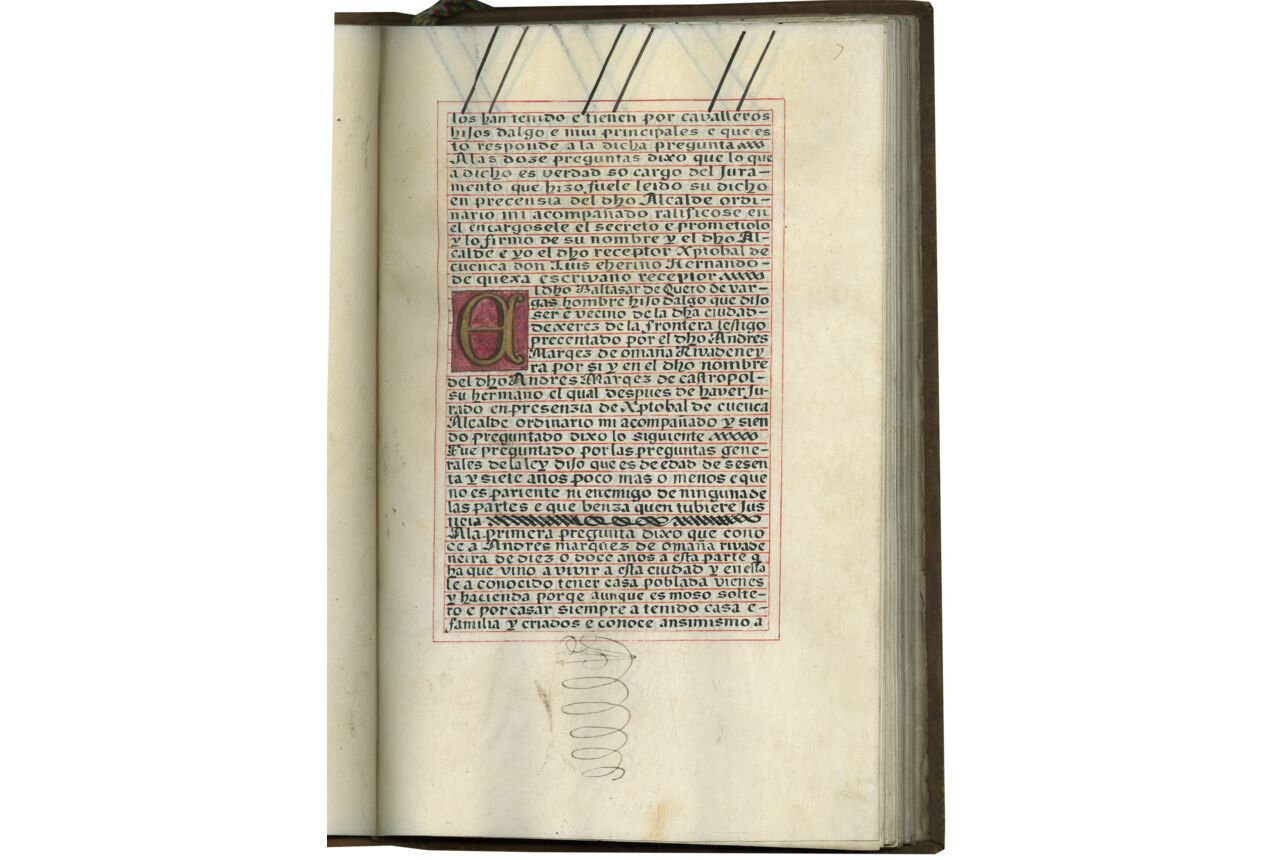 los han tenido e tienen por cavalleros
hijos dalgo e mui principales e que es
to responde a la dicha pregunta
A las doze preguntas dixo que lo que
a dicho es verdad so cargo del Jura-
mento que hizo fuele leido su dicho
en precensia del dho Alcalde ordi-
nario mi acompañado ratificose en
el encargosele el secreto e prometiolo
y lo firmo de su nombre y el dho Al-
calde e yo el dho receptor Xptobal de
cuenca don Luis cherino Hernando-
de quexa escrivano receptor
El dho Baltasar de Queto de var-
gas hombre hijo dalgo que dijo
ser e vecino de la dha ciudad-
de xerez de la frontera testigo
precentado por el dho Andres
Marqez de omana Rivadeney
ra por si y en el dho nombre
del dho Andres Marqez de castropol-
su hermano el qual despues de haver Ju-
rado en presenzia de Xptobal de cuenca
Alcalde ordinario mi acompañado y sien
do preguntado dixo lo siguiente
Fue preguntado por las preguntas gene-
rales de la ley dijo que es de edad de sesen
ta y siete años poco mas o menos e que
no es pariente ni enemigo de ninguna de
las partes e que benza quen tubiere Jus
ticia
A la primera pregunta dixo que cono
ce a Andres marquez de omaña rivade
neira de diez o doce años a esta parte q
ha que vino a vivir a esta ciudad y en ella
le a conocido tener casa poblada vienes
y hacienda porqe aunque es moso solte-
ro e por casar siempre a tenido casa e-
familia y criados e conoce ansimismo a